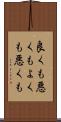 良くも悪
くもよく
も悪くも